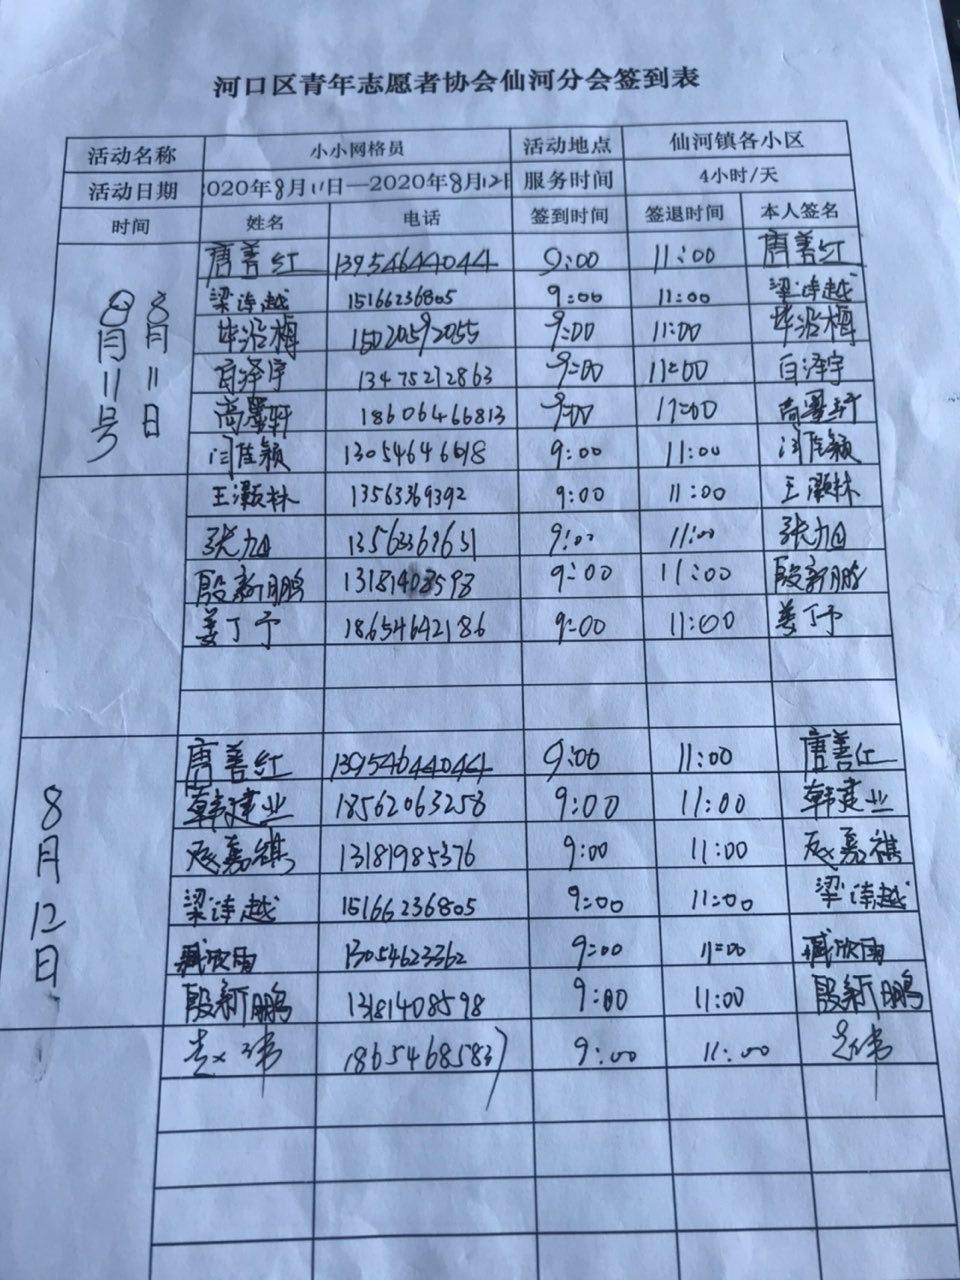 河口区青年志愿者协会仙河分会签到表
活动名称 小小网格员 活动地点 仙河镇各小区
活动日期 2020年8月11日—2020年8月12日 服务时间 4小时/天
时间 姓名 电话 签到时间 签退时间 本人签名
8月11号 8月11日
唐善红 13954644044 9:00 11:00 唐善红
梁涛越 15166236805 9:00 11:00 梁涛越
15020592055 9:00 11:00
白泽宇 13475212863 9:00 11:00 白泽宇
高墨轩 18606466813 9:00 11:00 高墨轩
闫佳颖 13054646618 9:00 11:00 闫佳颖
王灏林 13563369392 9:00 11:00 王灏林
张九日 13563369631 9:00 11:00 张九日
殷新鹏 13181408598 9:00 11:00 殷新鹏
姜丁予 18654642186 9:00 11:00 姜丁予
8月12日
唐善红 13954644044 9:00 11:00 唐善红
韩建业 18562063258 9:00 11:00 韩建业
嘉祺 13181985376 9:00 11:00 嘉祺
梁涛越 15166236805 9:00 11:00 梁涛越
臧欣雨 13054623362 9:00 11:00 臧欣雨
殷新鹏 13181408598 9:00 11:00 殷新鹏
18654685837 9:00 11:00